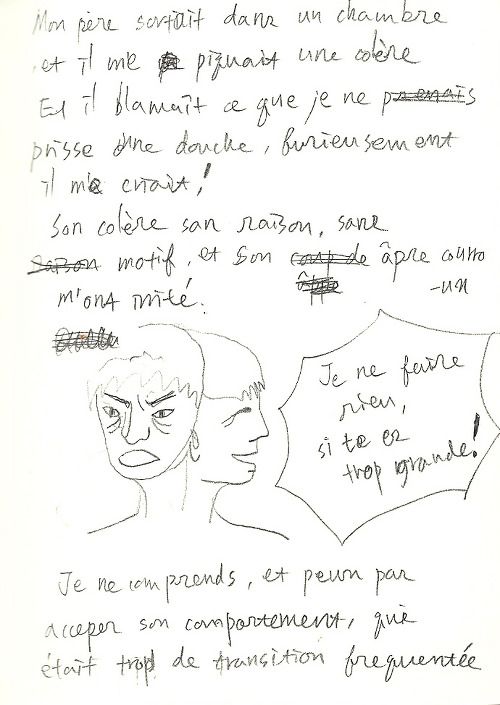 Mon père sortait dans un chambre
et il me piquait une colère
Et il blamait ce que je ne prenais
prisse une douche, furieusement
il me criait!
Son colère san raison, sans
raison motif, et Son coup de âpre courro
-ux
m'ont irrité.
Je ne faire
rien,
si te es
trop grande!
Je ne comprends, et peux par
acceper son comportement, que
était trop de transition frequentée